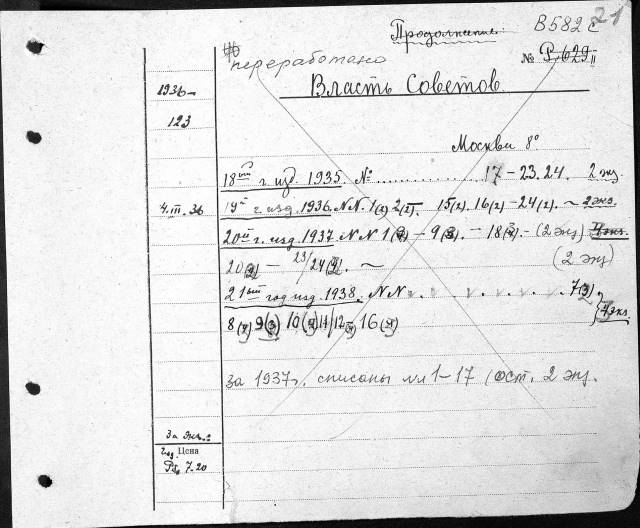 21
Продолжение
В582
переработано
№ Р.629 II
Власть Советов.
1936—
123
Москва 8°
18ый г. изд. 1935. № ........ 17 – 23.24. 2 экз
4.III.36
19й г. изд. 1936. NN. 1(2) 2(2). 15(2). 16(2) – 24(2). ~ 2 экз.
20ый г. изд. 1937. NN 1(2) – 9(3). – 18(2). – (2 экз) 4 экз.
20(2) — 23/24(2). ~ (2 экз)
21ый год изд. 1938. NN v. v. v. v. v. v. 7(3).
8(2) 9(3) 10(2) 11/12(2) 16(2) 4 экз.
За 1937 г. списаны №№ 1–17 (ост. 2 экз.
За экз.:
год. Цена
Рб. 7.20